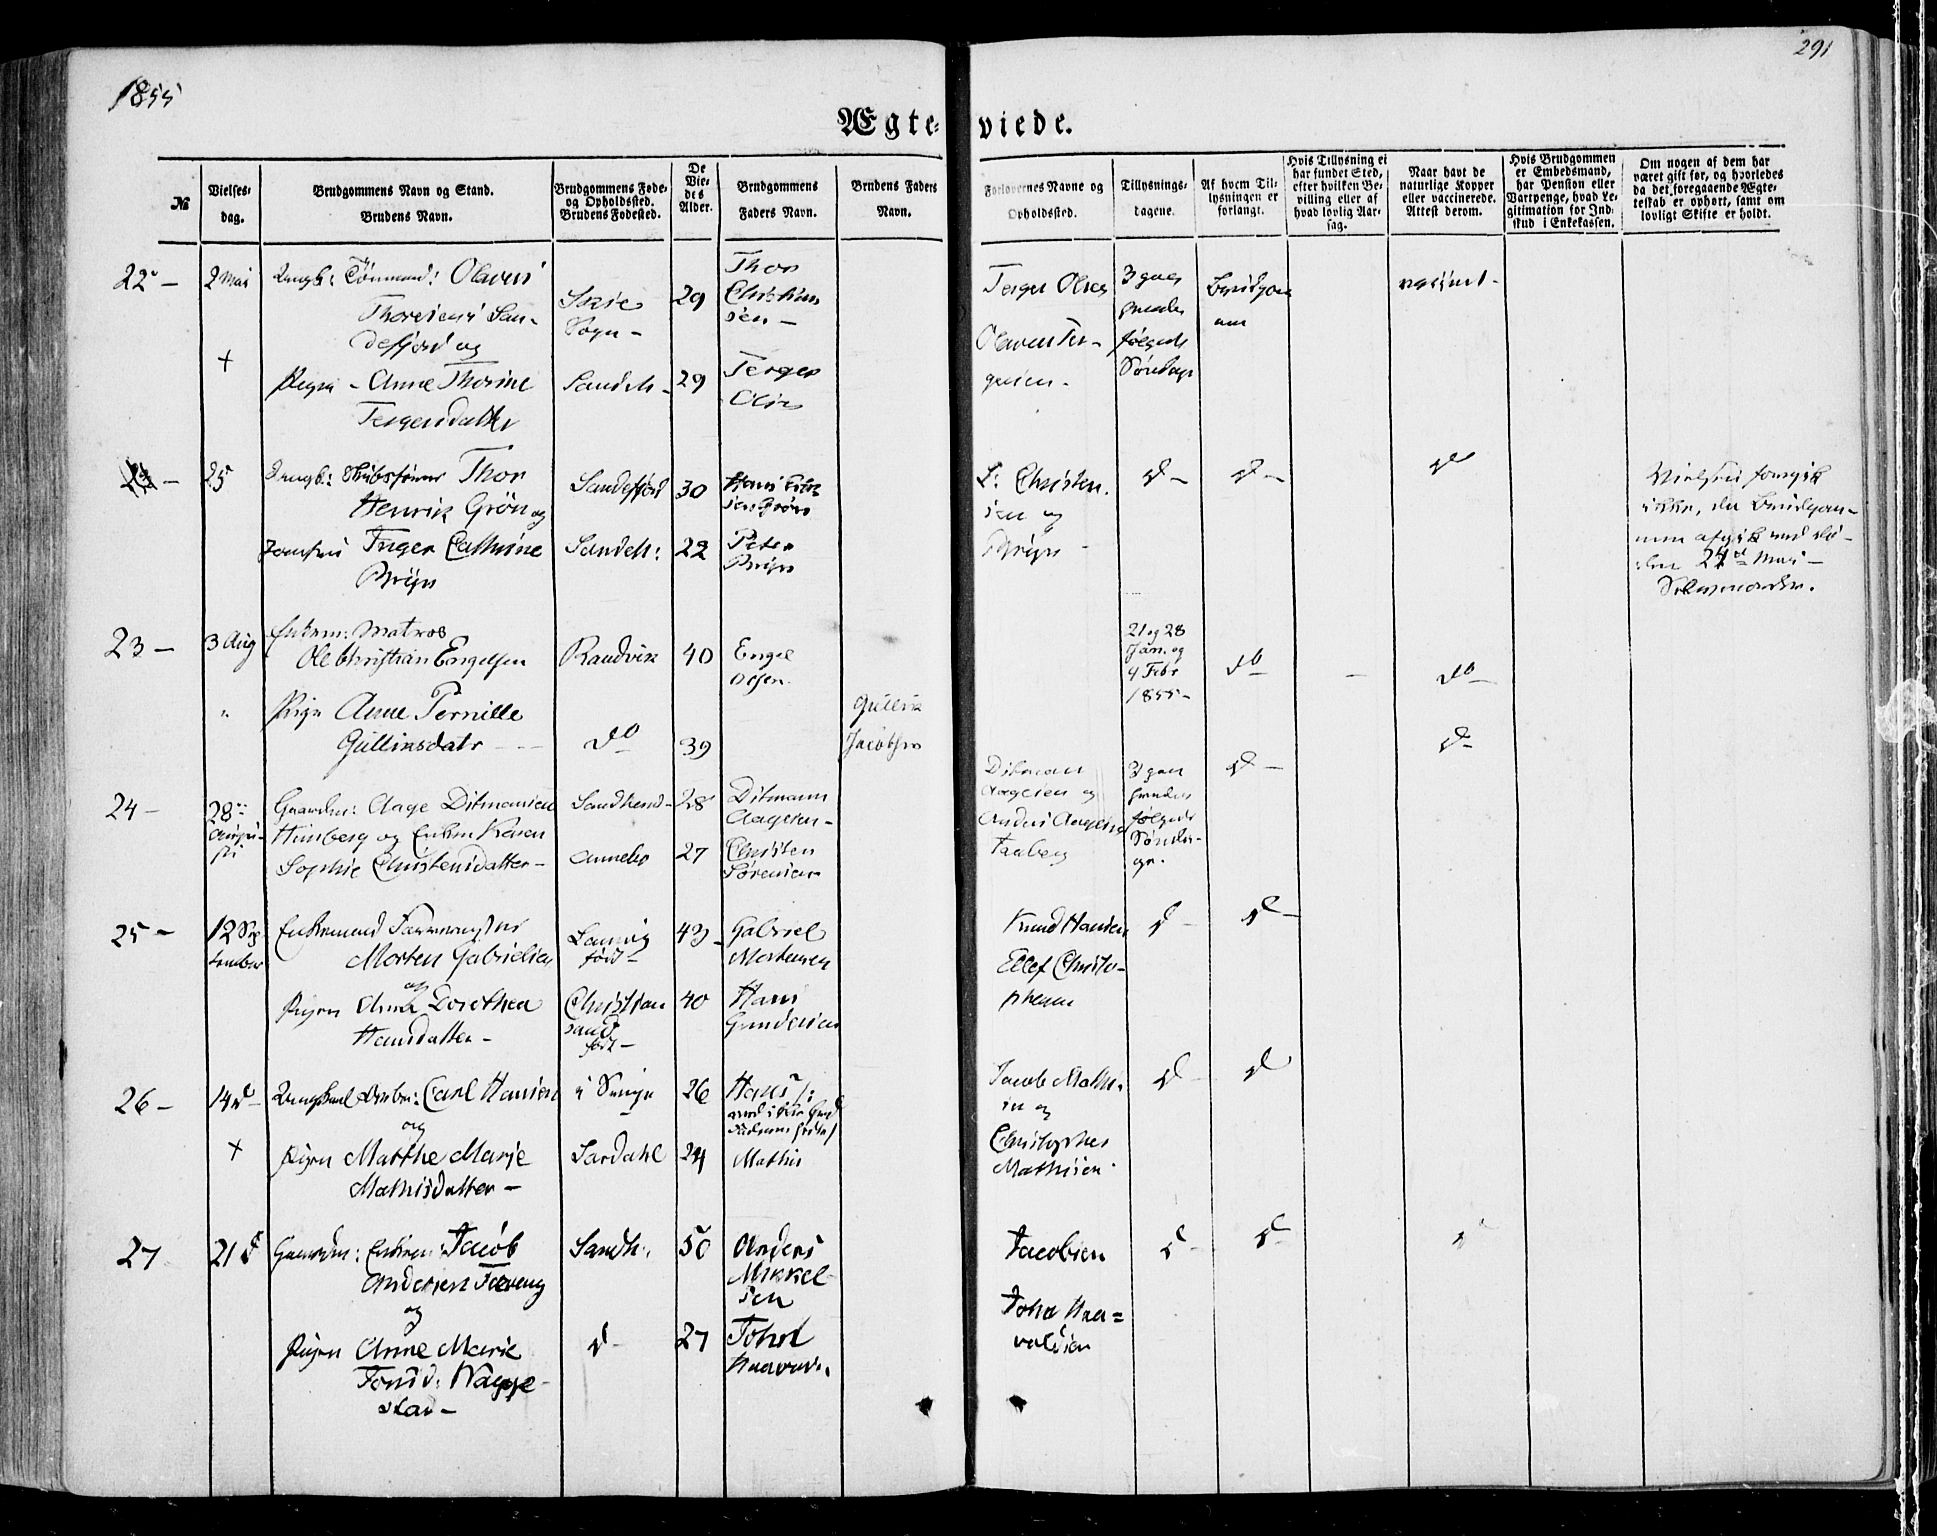 1855
291
Ægte- viede.
№
Vielses-
dag.
Brudgommens Navn og Stand.
Brudens Navn.
Brudgommens Føde-
og Opholdssted.
Brudens Fødested.
De
Vie-
des
Alder.
Brudgommens
Faders Navn.
Brudens Faders
Navn.
Forlovernes Navne og
Opholdssted.
Tillysnings-
dagene.
Af hvem Til-
lysningen er
forlangt.
Hvis Tillysning ei
har fundet Sted,
efter hvilken Be-
villing eller af
hvad lovlig Aar-
sag.
Naar havt de
naturlige Kopper
eller vaccinerede.
Attest derom.
Hvis Brudgommen
er Embedsmand,
har Pension eller
Vartpenge, hvad Le-
gitimation for Ind-
skud i Enkekassen.
Om nogen af dem har
været gift før, og hvorledes
da det foregaaende Ægte-
skab er ophørt, samt om
lovligt Skifte er holdt.
22 -
2 Mai
Ungk: Tømmermd: Olaves
Thoresen i San-
defjord og
+
Pigen - Anne Thorine
Tergersdatter
Skie
Sogn -
Sandeh -
29
29
Thor
Christian
sen -
Terger
Olsen
Terger Olsen
Olaves Ter-
gersen -
3 gange
paa
følgende
Søndage
Brudgom
men
25
Ungk: Skibsfører Thor
Henrik Grøn og
Jomfru Inger Cathrine
Bryn
Sandefjord
Sandeh:
30
22
Hans
sen Grøn
Peter
Bryn
L: Christen-
sen og
Bryn -
d -
d -
d
Vielsen foregik
ikke, da Brudgom-
men afgik ved Dø-
den 24de Mai -
23 -
3 Aug
Enkem: Matros
Ole Christian Engelsen
"
Pige Anne Pernille
Gulliksdatr - -
Randvik
do
40
39
Engel
Olsen.
Gullik
Jacobsen
21 og 28
Jan. og
4 Febr
1855 -
do
-
do
d -
24 -
28de
August
Gaardm: Aage Ditmansen
Himberg og Enken Karen
Sophie Christensdatter -
Sandherred -
Annebo
28
27
Ditmann
Aagesen -
Christen
Sørensen
Ditman
Aagesen og
Anders Aagesen
3 gan
følgende
Sønda-
ge.
d -
25 -
12 Sep
tember
Enkemand
Morten Gabrielsen
og
Pigen Anne Dorothea
Hansdatter -
Laurvig
født -
Christian
sand
født -
43 -
40
Gabriel
Mortensen
Hans
Gundersen
Knud Hansen
Ellef Christo-
phersen
d -
d -
26 -
14 d -
Ungkarl Arbm: Carl Hansen
og
+
Pigen Marthe Marie
Mathisdatter -
Sardahl
26
24
Hans
Mathis
Jacob Mathi-
sen og
Christopher
Mathisen -
d -
d
27
21 d
Gaardm: Enkem: Jacob
Andersen Fevang
og
Pigen Anne Marie
Johnsd: Vagge-
stad -
Sandh:
d -
50
27
Anders
Mikkel-
sen
John
Haavald.
Jacobsen
John Haa-
valdsen
d -
d -
d